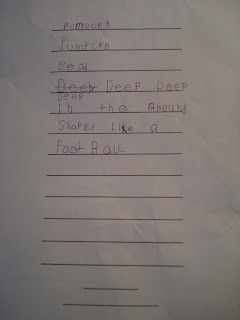 PumPckn
PumPckn
Sead
Deep Deep Deep
Deep
In the Ground
Shaped Like a
Foot Ball